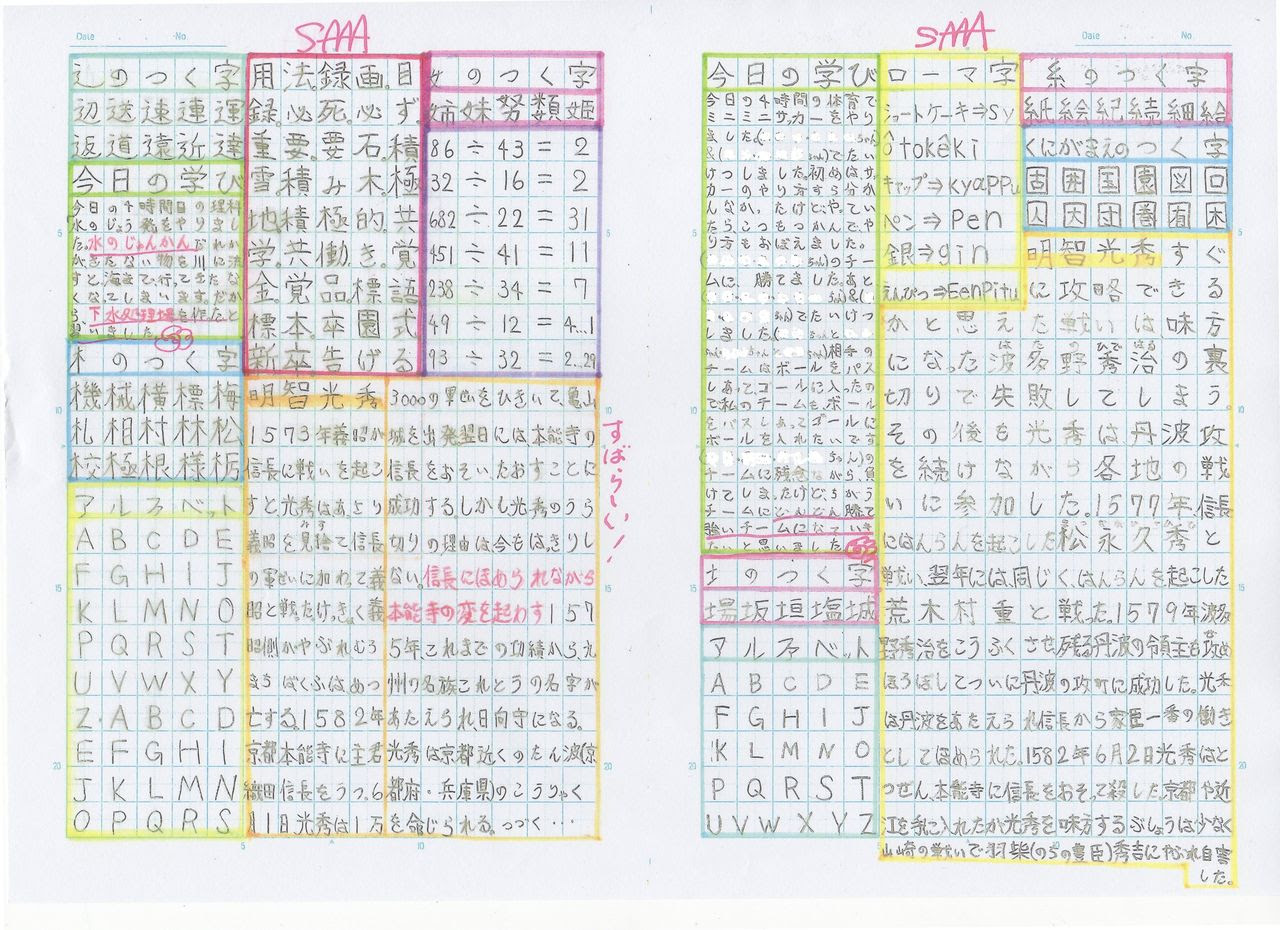 Date . . No.
SAAA
辶のつく字
辺送速連運
返道遠近達
今日の学び
今日の4時間目の理科
水のじょう発をやりまし
た。水のじゅんかん
すと、海まで、行ってきたなく
なってしまいます。だか
ら、下水処理場を作ったと
習いました。
木のつく字
機械横標梅
札相村林松
校極根様栃
アルファベット
A B C D E
F G H I J
K L M N O
P Q R S T
U V W X Y
Z. A B C D
E F G H I
J K L M N
O P Q R S
用法録画。目
録。必死。必ず。
重要。要石。積
雪。積み木。極
地。積極的。共
学。共働き。覚
金。覚品。標語
標本。卒園式
新卒。告げる
女のつく字
姉妹努類姫
86÷43=2
32÷16=2
682÷22=31
451÷41=11
238÷34=7
49÷12=4…1
93÷32=2…29
明智光秀
1573年義昭が
信長に戦いを起こ
すと光秀はあっさり
義昭を見捨て信長
の軍ぜいに加わって義
昭と戦った。けっきょく義
昭側がやぶれむろ
まちばくふはめつ
亡する。1582年
京都本能寺に主君
織田信長をうつ。6
月1日光秀は1万
3000の軍ぜいをひきいて、亀山
城を出発翌日には本能寺の
信長をおそい、たおすことに
成功する。しかし光秀のうら
切りの理由は今もはっきりし
ない。信長にほめられながら
本能寺の変を起わす157
5年、これまでの功績から、九
州の名族これとうの名字が
あたえられ、日向守になる。
光秀は京都近くのたん波(京
都府・兵庫県)のこうりゃく
を命じられる。つづく…
すばらしい!
SAAA
Date . . No.
今日の学び
今日の4時間の体育で
ミニミニサッカーをやり
ました。
けつしました。初めは、サッ
カーのやり方すら分か
んなかったけど、やってい
たら、こつもつかんで、や
り方もおぼえました。
ちゃん)のチー
ムに、勝てました。あと
でたいけつ
しました。
相手の
チームはボールをパス
しあって、ゴールに入ったの
で私のチームも、ボール
をパスしあってゴールに
ボールを入れたいです
チームに残念ながら、負
けてしまったけど、ちがう
チームにどんどん勝て
強いチームになっていき
たいと思いました。
土のつく字
場坂垣塩城
アルファベット
A B C D E
F G H I J
K L M N O
P Q R S T
U V W X Y Z
ローマ字
ショートケーキ⇒Sy
ôtokêki
キャップ⇒kyappu
ペン⇒pen
銀⇒gin
えんぴつ⇒EenPitu
糸のつく字
紙絵紀続細給
くにがまえのつく字
固囲国園図回
囚因団圏囿困
明智光秀すぐ
に攻略できる
かと思えた戦いは、味方
になった波多野秀治の裏
切りで失敗してしまう。
その後も光秀は、丹波攻
を続けながら各地の戦
いに参加した。1577年、信長
にはんらんを起こした松永久秀と
戦い、翌年には、同じく、はんらんを起こした
荒木村重と戦った。1579年波多
野秀治をこうふくさせ、残る丹波の領主も攻め
ほろぼしてついに丹波の攻町に成功した。光秀
は丹波をあたえられ信長から家臣一番の働き
としてほめられた。1582年6月2日光秀はと
つぜん、本能寺に信長をおそって殺した。京都や近
江を手に入れたが光秀を味方するぶしょうは少なく
山崎の戦いで羽柴(のちの豊臣)秀吉にやぶれ自害
した。